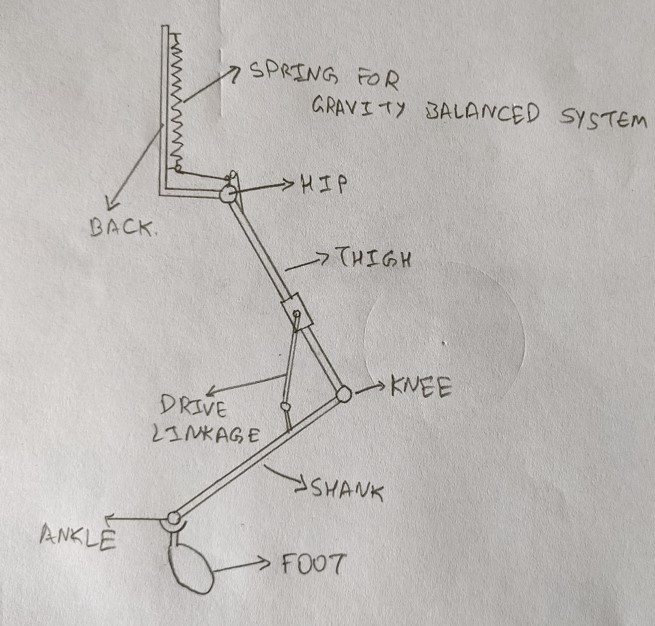 SPRING FOR
GRAVITY BALANCED SYSTEM
HIP
BACK.
THIGH
KNEE
DRIVE
LINKAGE
SHANK
ANKLE
FOOT